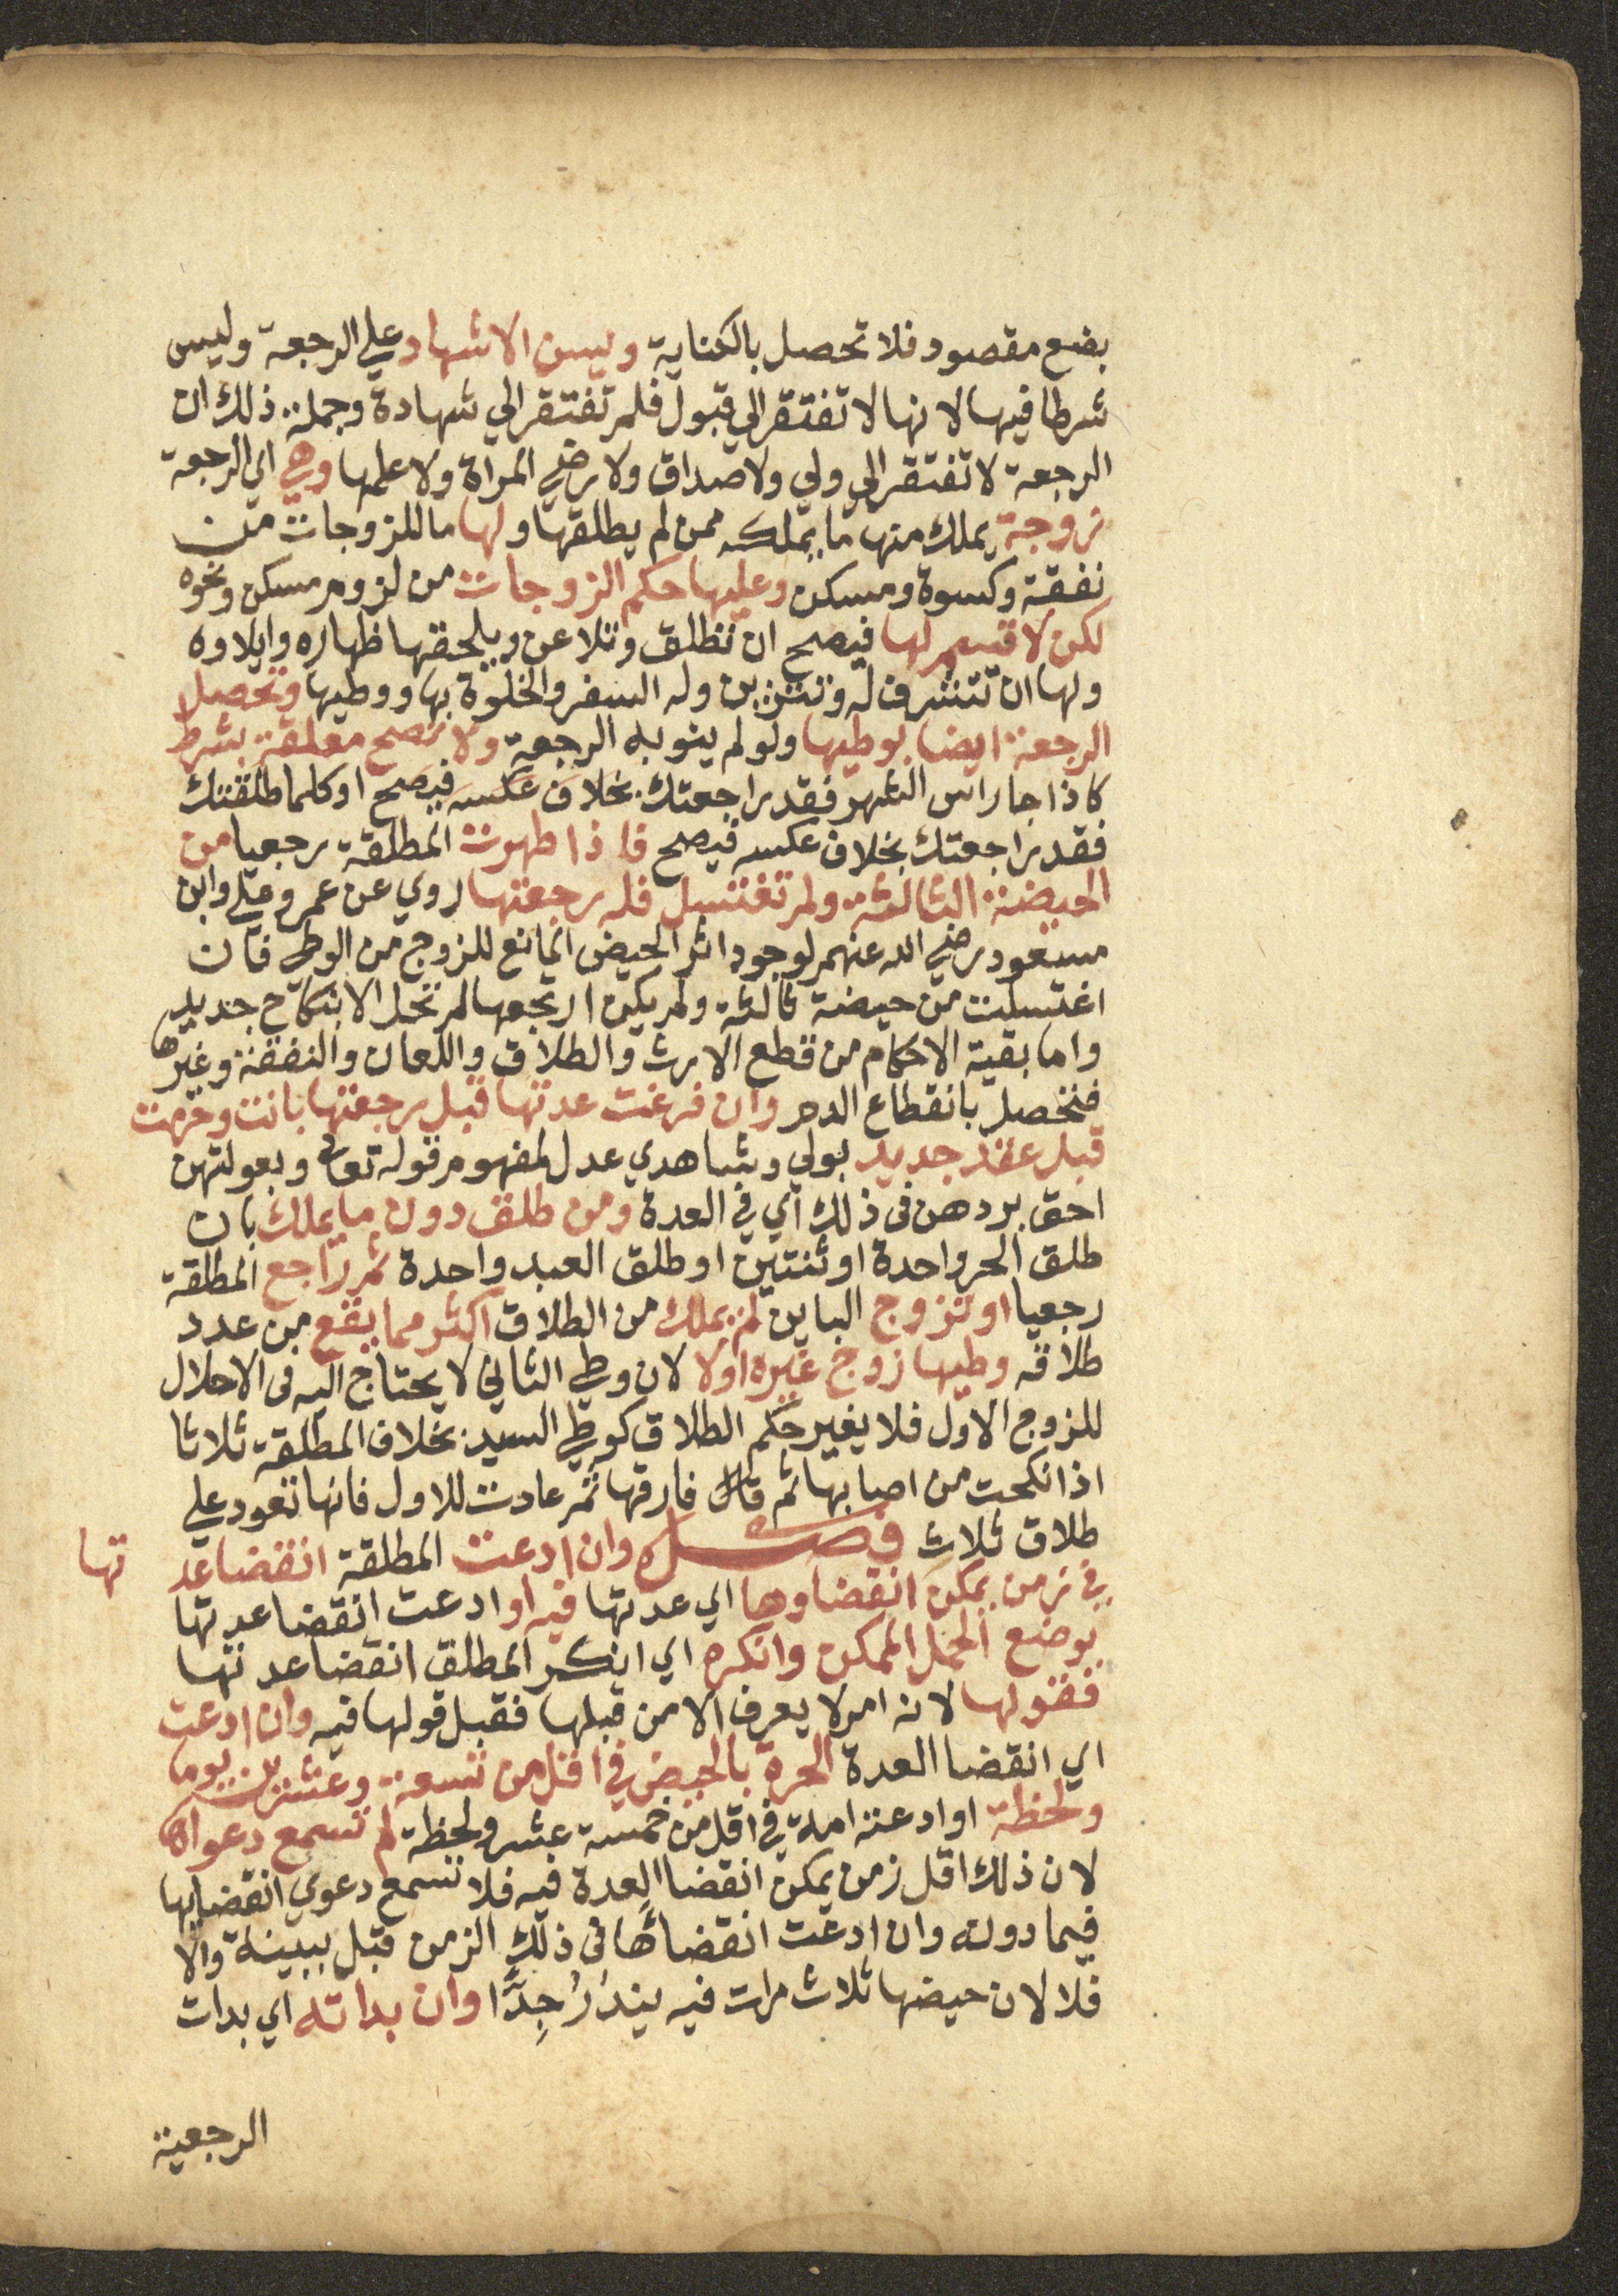 بضع مقصود فلا تحصل بالكناية ويسن الاشهاد علي الرجعة وليس
شرطا فيها لانها لا تفتقر الي قبول فلم تفتقر الي شهادة وجملة ذلك ان
الرجعة لا تفتقر الي ولي ولا صداق ولا رضي المراة ولا علمها وهي اي الرجعة
زوجة يملك منها ما يملكه ممن لم يطلقها ولها ما للزوجات من
نفقة وكسوة ومسكن وعليها حكم الزوجات من لزوم مسكن ونحوه
لكن لا قسم لها فيصح ان تطلق وتلاعن ويلحقها ظهاره وايلاوه
ولها ان تتشرف له وتتزين وله السفر والخلوة بها ووطيها وتحصل
الرجعة ايضا بوطيها ولو لم ينو به الرجعة ولا تصح معلقة بشرط
كاذا جا راس الشهر فقد راجعتك بخلاف عكسه فيصح او كلما طلقتك
فقد راجعتك بخلاف عكسه فيصح فاذا طهرت المطلقة رجعيا من
الحيضة الثالثة ولم تغتسل فله رجعتها روي عن عمر وعلي وابن
مسعود رضي الله عنهم لوجود اثر الحيض المانع للزوج من الوطي فان
اغتسلت من حيضة ثالثة ولم يكن ارتجعها لم تحل الا بنكاح جديد
واما بقية الاحكام من قطع الارث والطلاق واللعان والنفقة وغيرها
فتحصل بانقطاع الدم وان فرغت عدتها قبل رجعتها بانت وحرمت
قبل عقد جديد بولي وشاهدي عدل لمفهوم قوله تعالى وبعولتهن
احق بردهن في ذلك اي في العدة ومن طلق دون ما يملك بان
طلق الحر واحدة او ثنتين او طلق العبد واحدة ثم راجع المطلقة
رجعيا او تزوج الباين لم يملك من الطلاق اكثر مما بقي من عدد
طلاقه وطيها زوج غيره اولا لان وطي الثاني لا يحتاج اليه في الاحلال
للزوج الاول فلا يغير حكم الطلاق كوطي السيد بخلاف المطلقة ثلاثا
اذا نكحت من اصابها ثم فارقها ثم عادت للاول فانها تعود علي
طلاق ثلاث فصل وان ادعت المطلقة انقضا عدتها
في زمن يمكن انقضاوها اي عدتها فيه او ادعت انقضا عدتها
بوضع الحمل الممكن وانكره اي انكر المطلق انقضا عدتها
فقولها لانه امر لا يعرف الا من قبلها فقبل قولها فيه وان ادعت
اي انقضا العدة الحرة بالحيض في اقل من تسعة وعشرين يوما
ولحظة او ادعته امة في اقل من خمسة عشر ولحظة لم تسمع دعواها
لان ذلك اقل زمن يمكن انقضا العدة فيه فلا تسمع دعوي انقضايها
فيما دونه وان ادعت انقضائها في ذلك الزمن قبل ببينة والا
فلا لان حيضها ثلاث مرات فيه يندُرُ جِدًّا وان بداته اي بدات
الرجعية